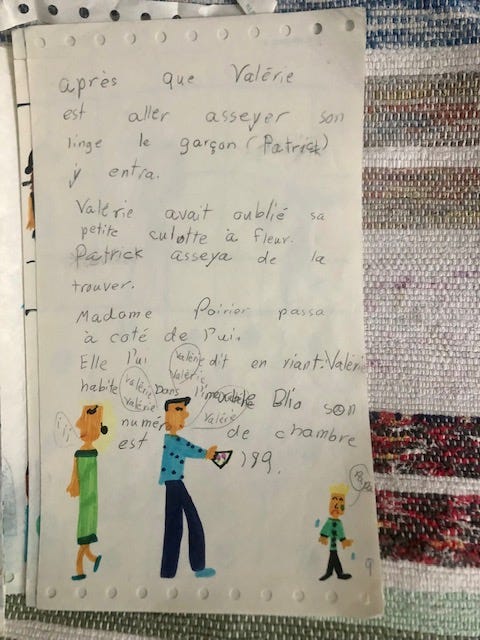 après que Valérie
est aller asseyer son
linge le garçon (Patrick)
y entra.
Valérie avait oublié sa
petite culotte à fleur.
Patrick asseya de la
trouver.
Madame Poirier passa
à coté de l'ui.
Elle l'ui dit en riant: Valérie
habite Dans l'immeuble Blio son
numéro de chambre
est 199.
Valérie
Valérie
Valérie
Valérie
Valérie
9